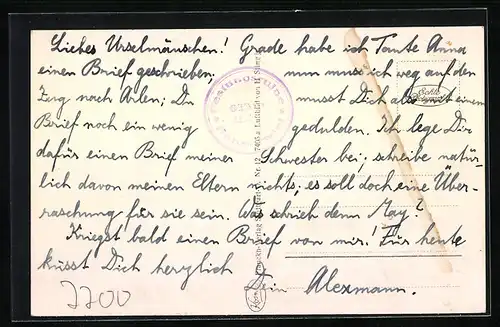 Liebes Urselmäuschen! Grade habe ich Tante Anna
einen Brief geschrieben; nun muss ich weg auf den
Zug nach Arlen; Du musst Dich also mit einem
Brief noch ein wenig gedulden. Ich lege Dir
dafür einen Brief meiner Schwester bei; schreibe natür-
lich davon meinen Eltern nichts; es soll doch eine Über-
raschung für sie sein. Was schrieb denn May?
Kriegst bald einen Brief von mir! Für heute
küsst Dich herzlich
Dein Alexmann.
7700